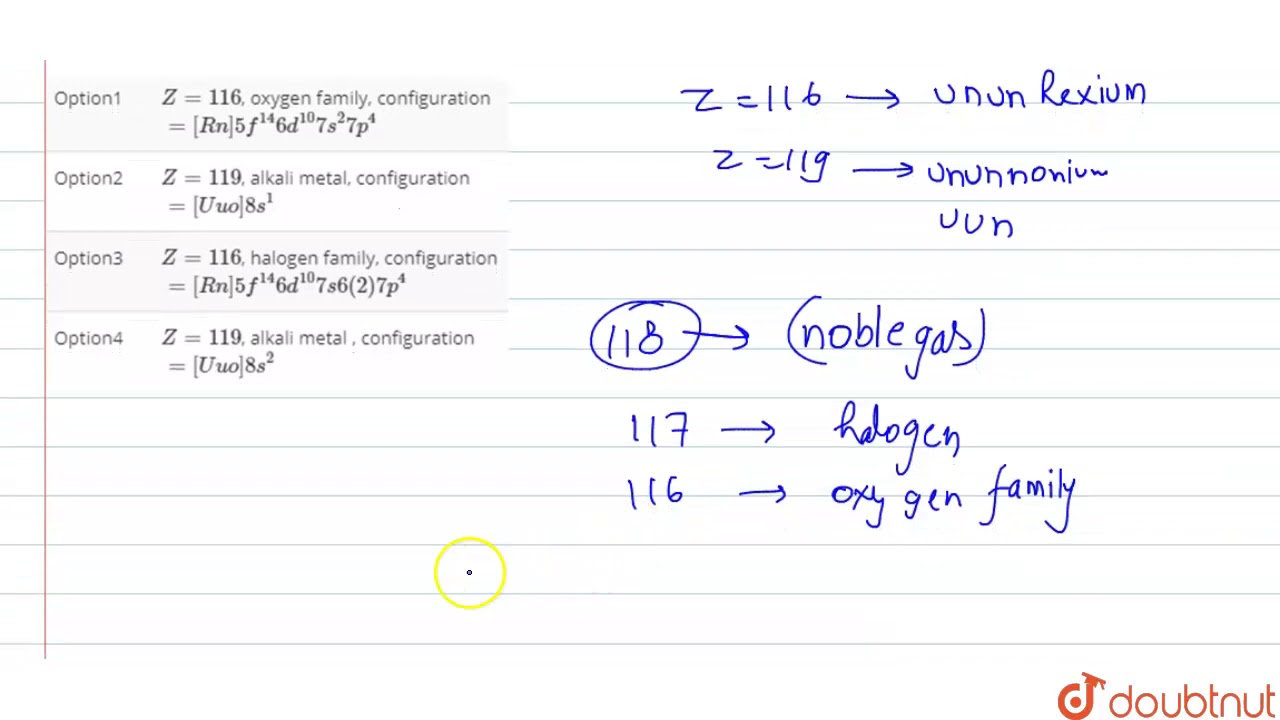 Option1 Z = 116, oxygen family, configuration
= [Rn]5f¹⁴6d¹⁰7s²7p⁴
Option2 Z = 119, alkali metal, configuration
= [Uuo]8s¹
Option3 Z = 116, halogen family, configuration
= [Rn]5f¹⁴6d¹⁰7s6(2)7p⁴
Option4 Z = 119, alkali metal , configuration
= [Uuo]8s²
Z = 116 → Unun hexium
Z = 119 → Ununnonium
UUn
118 → (noble gas)
117 → halogen
116 → oxygen family
doubtnut